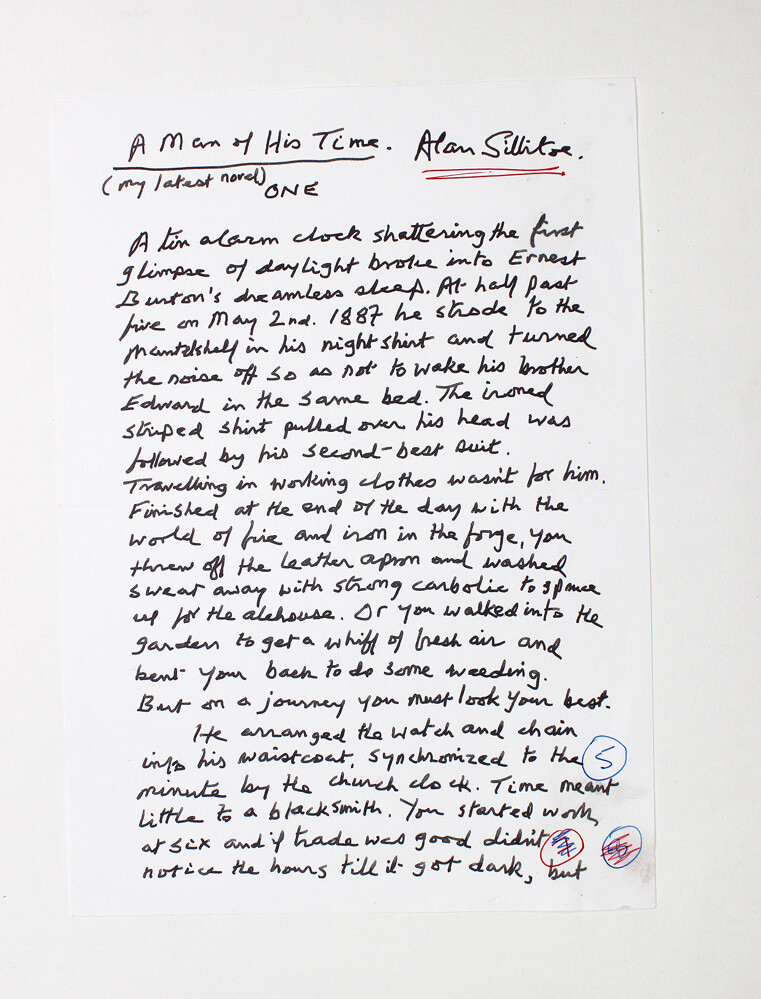 A Man of His Time. Alan Sillitoe.
(my latest novel)
ONE
A tin alarm clock shattering the first
glimpse of daylight broke into Ernest
Burton's dreamless sleep. At half past
five on May 2nd. 1887 he strode to the
mantelshelf in his nightshirt and turned
the noise off so as not to wake his brother
Edward in the same bed. The ironed
striped shirt pulled over his head was
followed by his second-best suit.
Travelling in working clothes wasn't for him.
Finished at the end of the day with the
world of fire and iron in the forge, you
threw off the leather apron and washed
sweat away with strong carbolic to spruce
up for the alehouse. Or you walked into the
garden to get a whiff of fresh air and
bent your back to do some weeding.
But on a journey you must look your best.
He arranged the watch and chain
into his waistcoat, synchronized to the
5
minute by the church clock. Time meant
little to a blacksmith. You started work,
at six and if trade was good didn't
notice the hours till it got dark, but